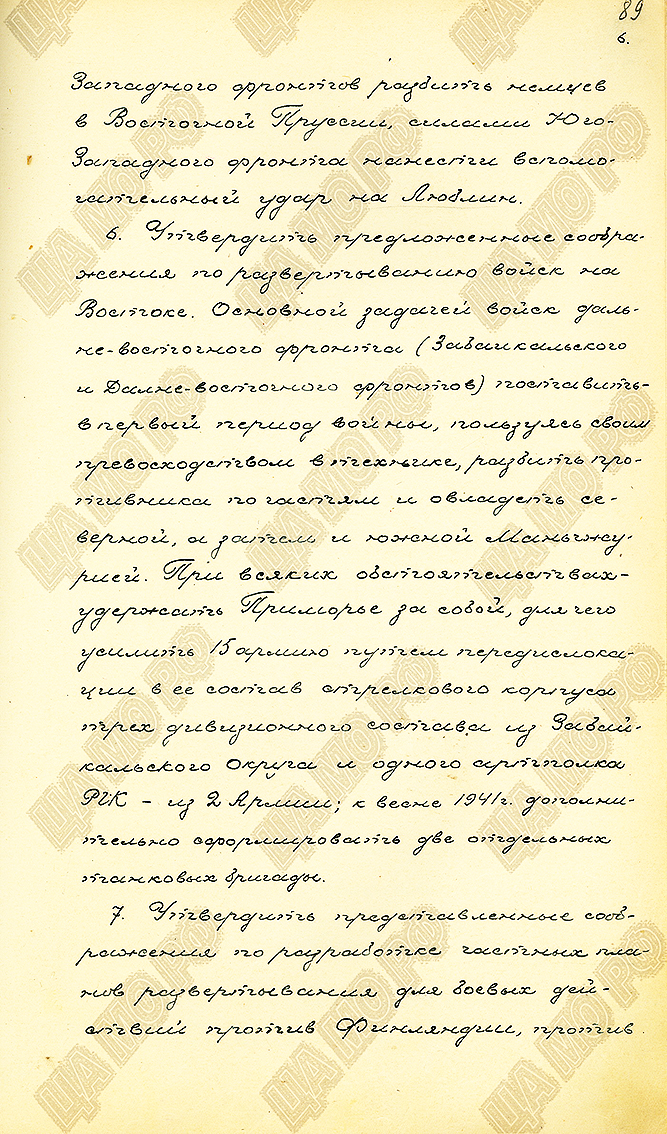 89
6.
Западного фронтов разбить немцев
в Восточной Пруссии, силами Юго-
Западного фронта нанести вспомо-
гательный удар на Люблин.
6. Утвердить предложенные сообра-
жения по развертыванию войск на
Востоке. Основной задачей войск даль-
не-восточного фронта (Забайкальского
и Далне-восточного фронтов) поставить-
в первый период войны, пользуясь своим
превосходством в технике, разбить про-
тивника по частям и овладеть се-
верной, а затем и южной Маньчжу-
рией. При всяких обстоятельствах-
удержать Приморье за собой, для чего
усилить 15 армию путем передислока-
ции в ее состав стрелкового корпуса
трех дивизионного состава из Забай-
кальского Округа и одного артполка
РГК - из 2 Армии; к весне 1941 г. дополни-
тельно сформировать две отдельных
танковых бригады.
7. Утвердить представленные сооб-
ражения по разработке частных пла-
нов развертывания для боевых дей-
ствий против Финляндии, против
ЦА МО РФ